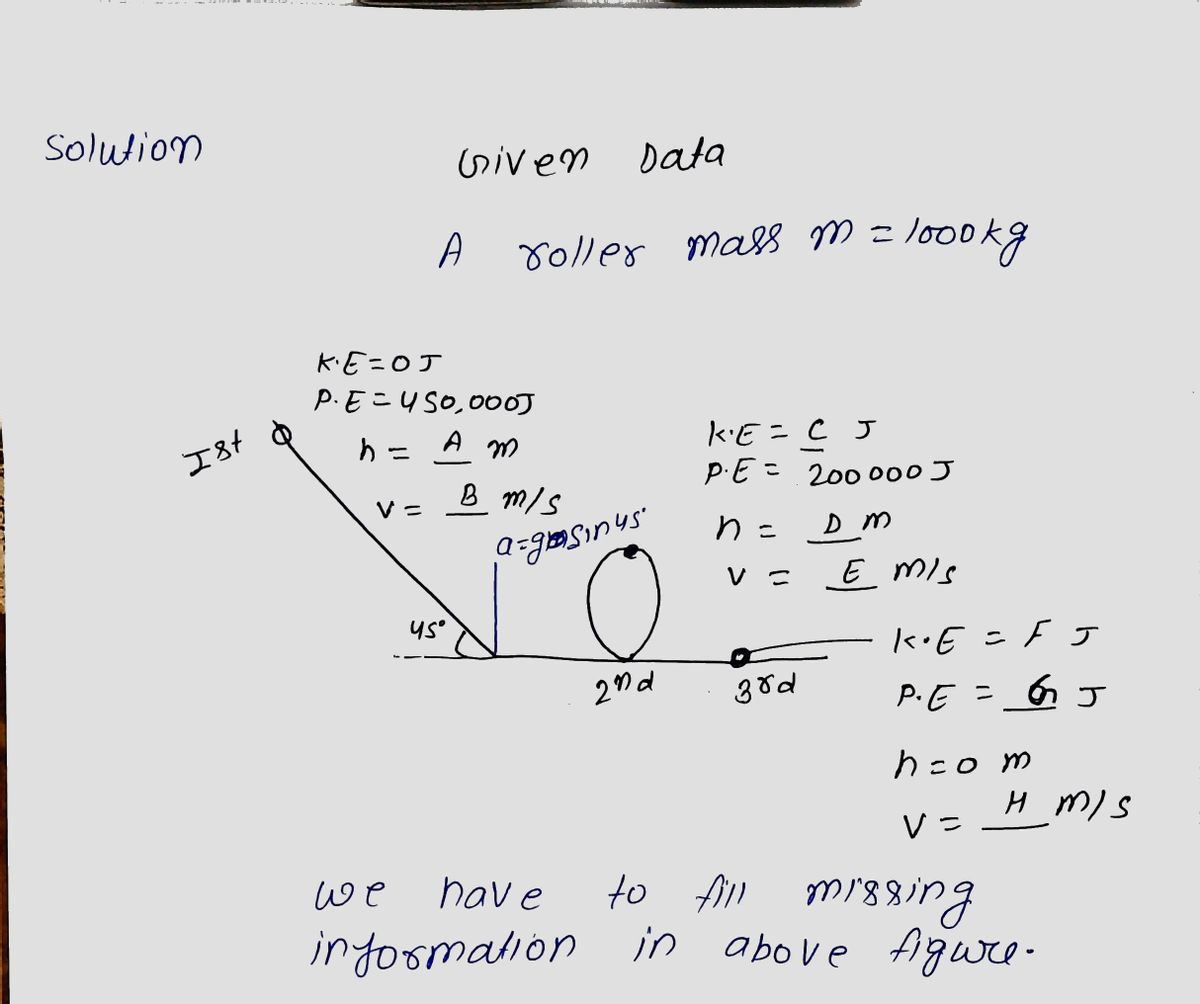 Solution
Given Data
A roller mass m = 1000kg
K.E = 0 J
P.E = 450,000J
Ist
h = A m
v = B m/s
a=g sin45°
K.E = C J
P.E = 200 000 J
h = D m
v = E m/s
45°
2nd
3rd
K.E = F J
P.E = G J
h = 0 m
v = H m/s
we have to fill missing
information in above figure.